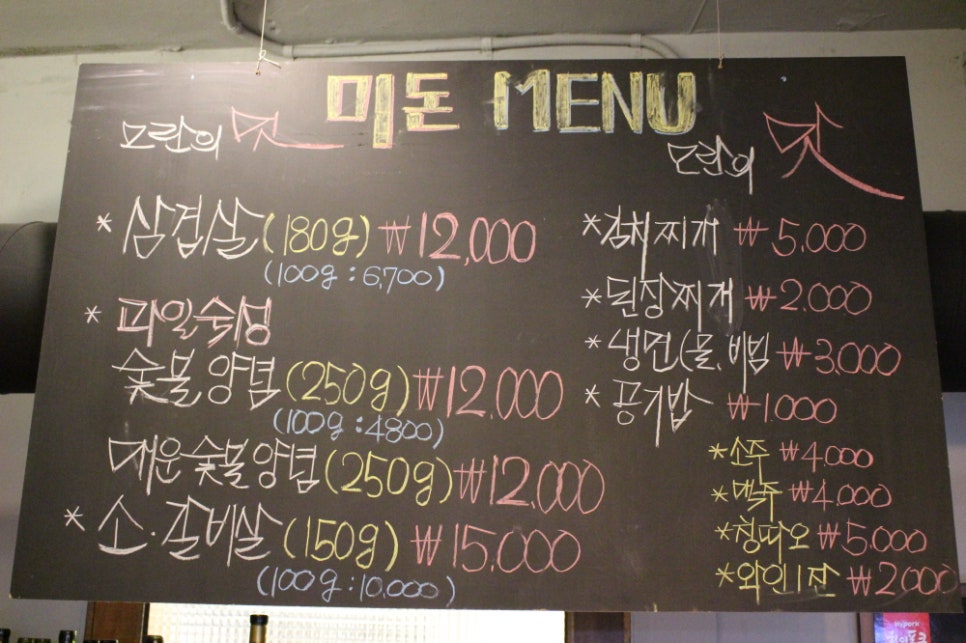 미돈 MENU
모란의 맛
모란의 맛
* 삼겹살 (180g) ₩12,000
(100g : 6,700)
* 과일숙성
숯불양념 (250g) ₩12,000
(100g : 4800)
매운숯불양념 (250g) ₩12,000
* 소.갈비살 (150g) ₩15,000
(100g : 10,000)
* 김치찌개 ₩5,000
* 된장찌개 ₩2,000
* 냉면(물,비빔 ₩3,000
* 공기밥 ₩1,000
* 소주 ₩4,000
* 맥주 ₩4,000
* 칭따오 ₩5,000
* 와인1잔 ₩2000